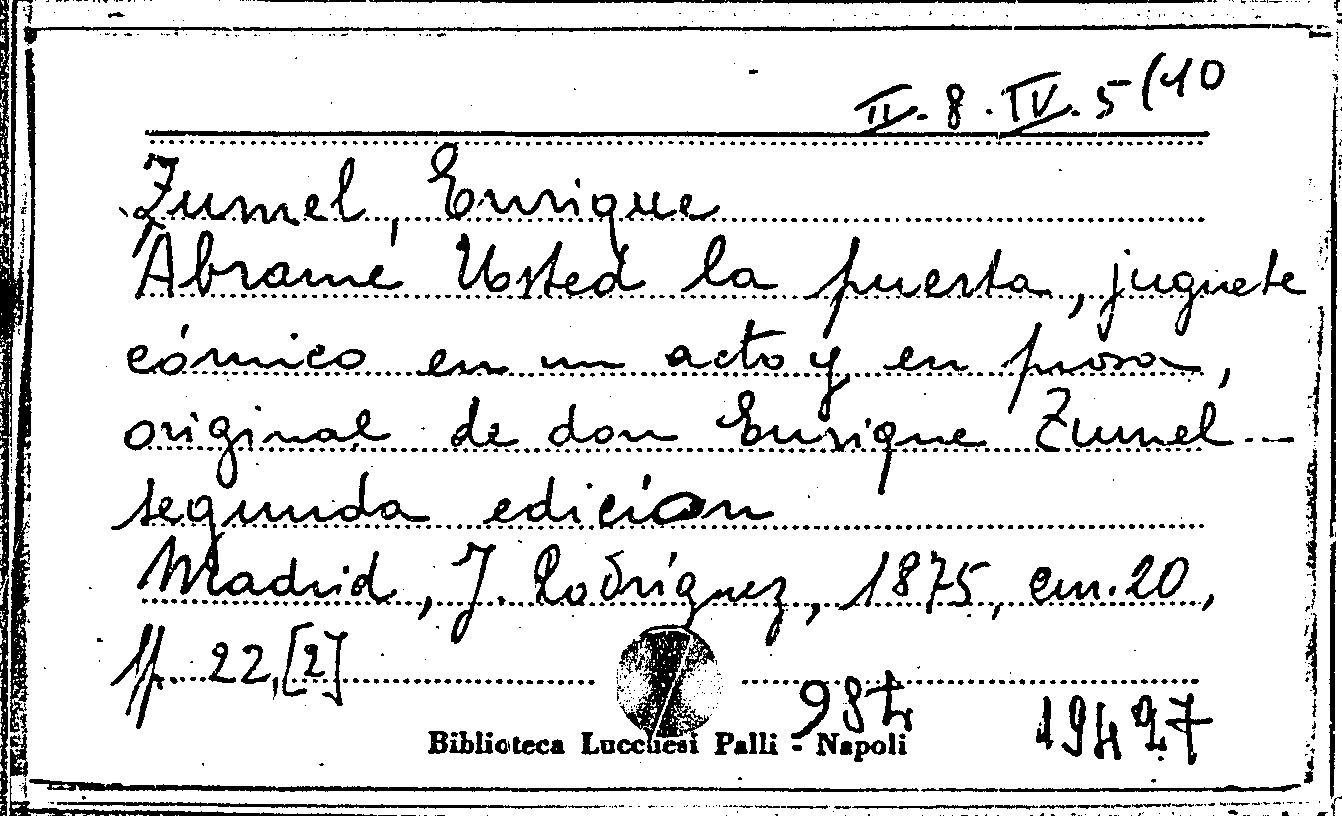 II. 8. IV. 5 (10
Zumel, Enrique
Abramé Usted la puerta, juguete
cómico en un acto y en prosa,
original de don Enrique Zumel --
segunda edición
Madrid, J. Rodríguez, 1875, cm. 20,
pp. 22, [2]
984 19497
Biblioteca Lucchesi Palli - Napoli